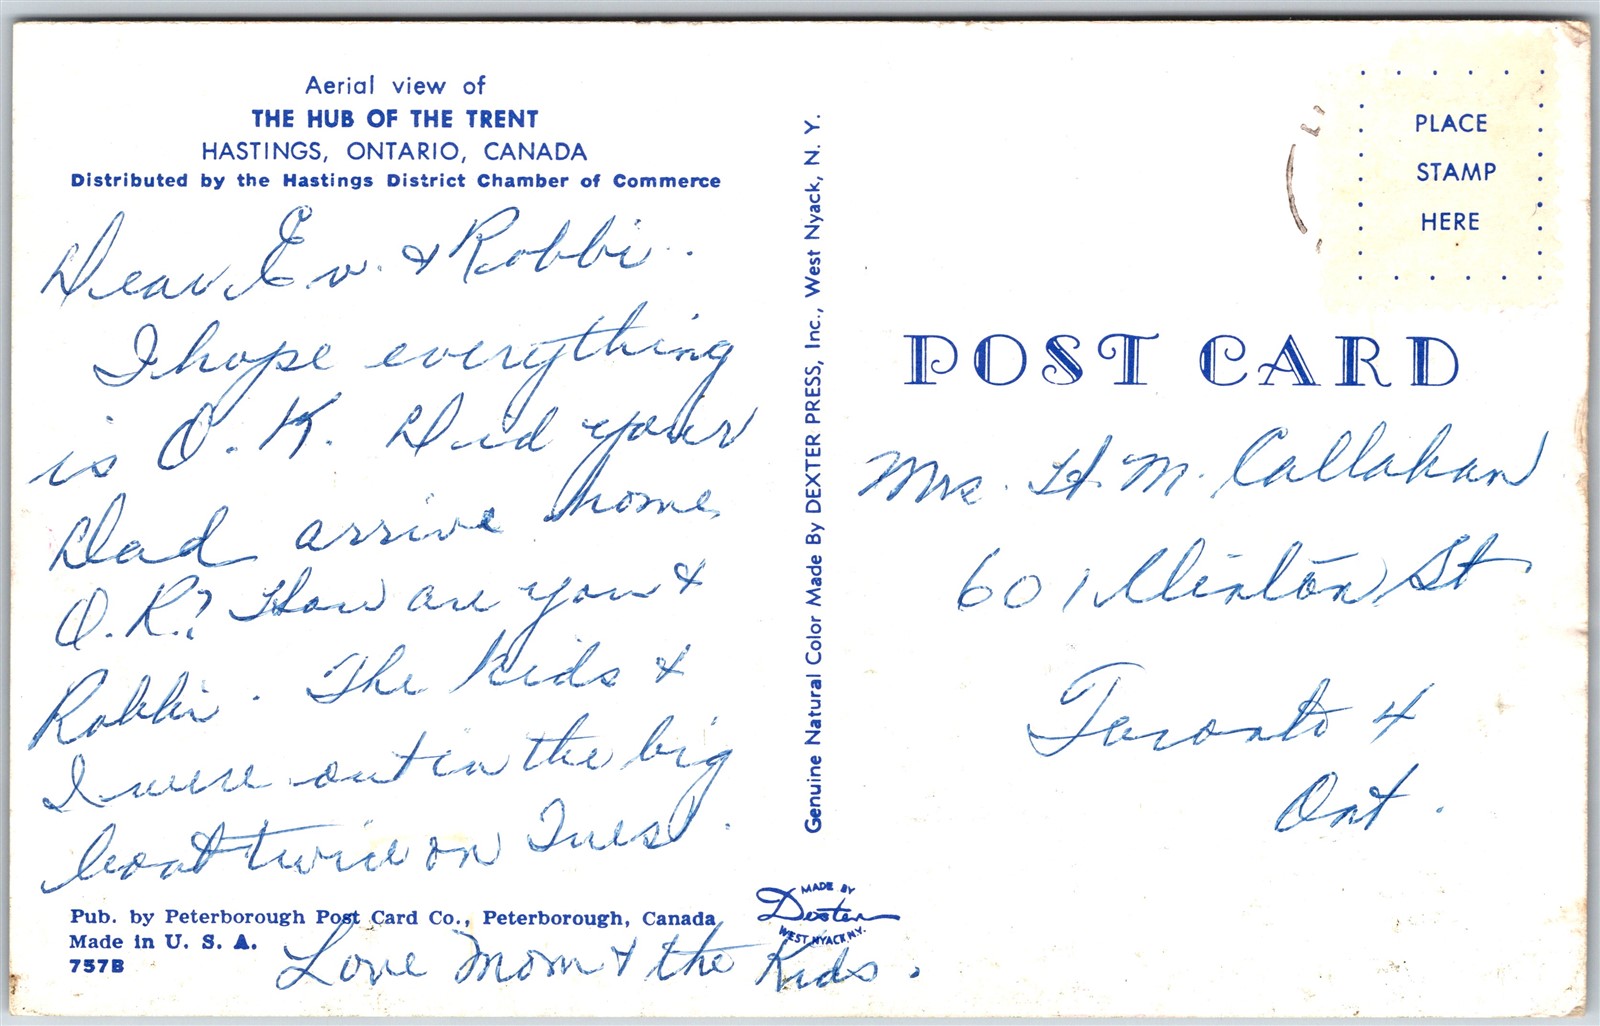 Aerial view of
THE HUB OF THE TRENT
HASTINGS, ONTARIO, CANADA
Distributed by the Hastings District Chamber of Commerce
Dear Ev. & Robbi.
I hope everything
is O.K. Did your
Dad arrive home
O.K.? How are you &
Robbi. The kids &
I were out in the big
boat twice on Tues.
Love Mom & the Kids.
Pub. by Peterborough Post Card Co., Peterborough, Canada
Made in U. S. A.
757B
Genuine Natural Color Made By DEXTER PRESS, Inc., West Nyack, N. Y.
MADE BY
Dexter
WEST NYACK, N.Y.
PLACE
STAMP
HERE
POST CARD
Mrs. H. M. Callahan
601 St
Toronto 4
Ont.